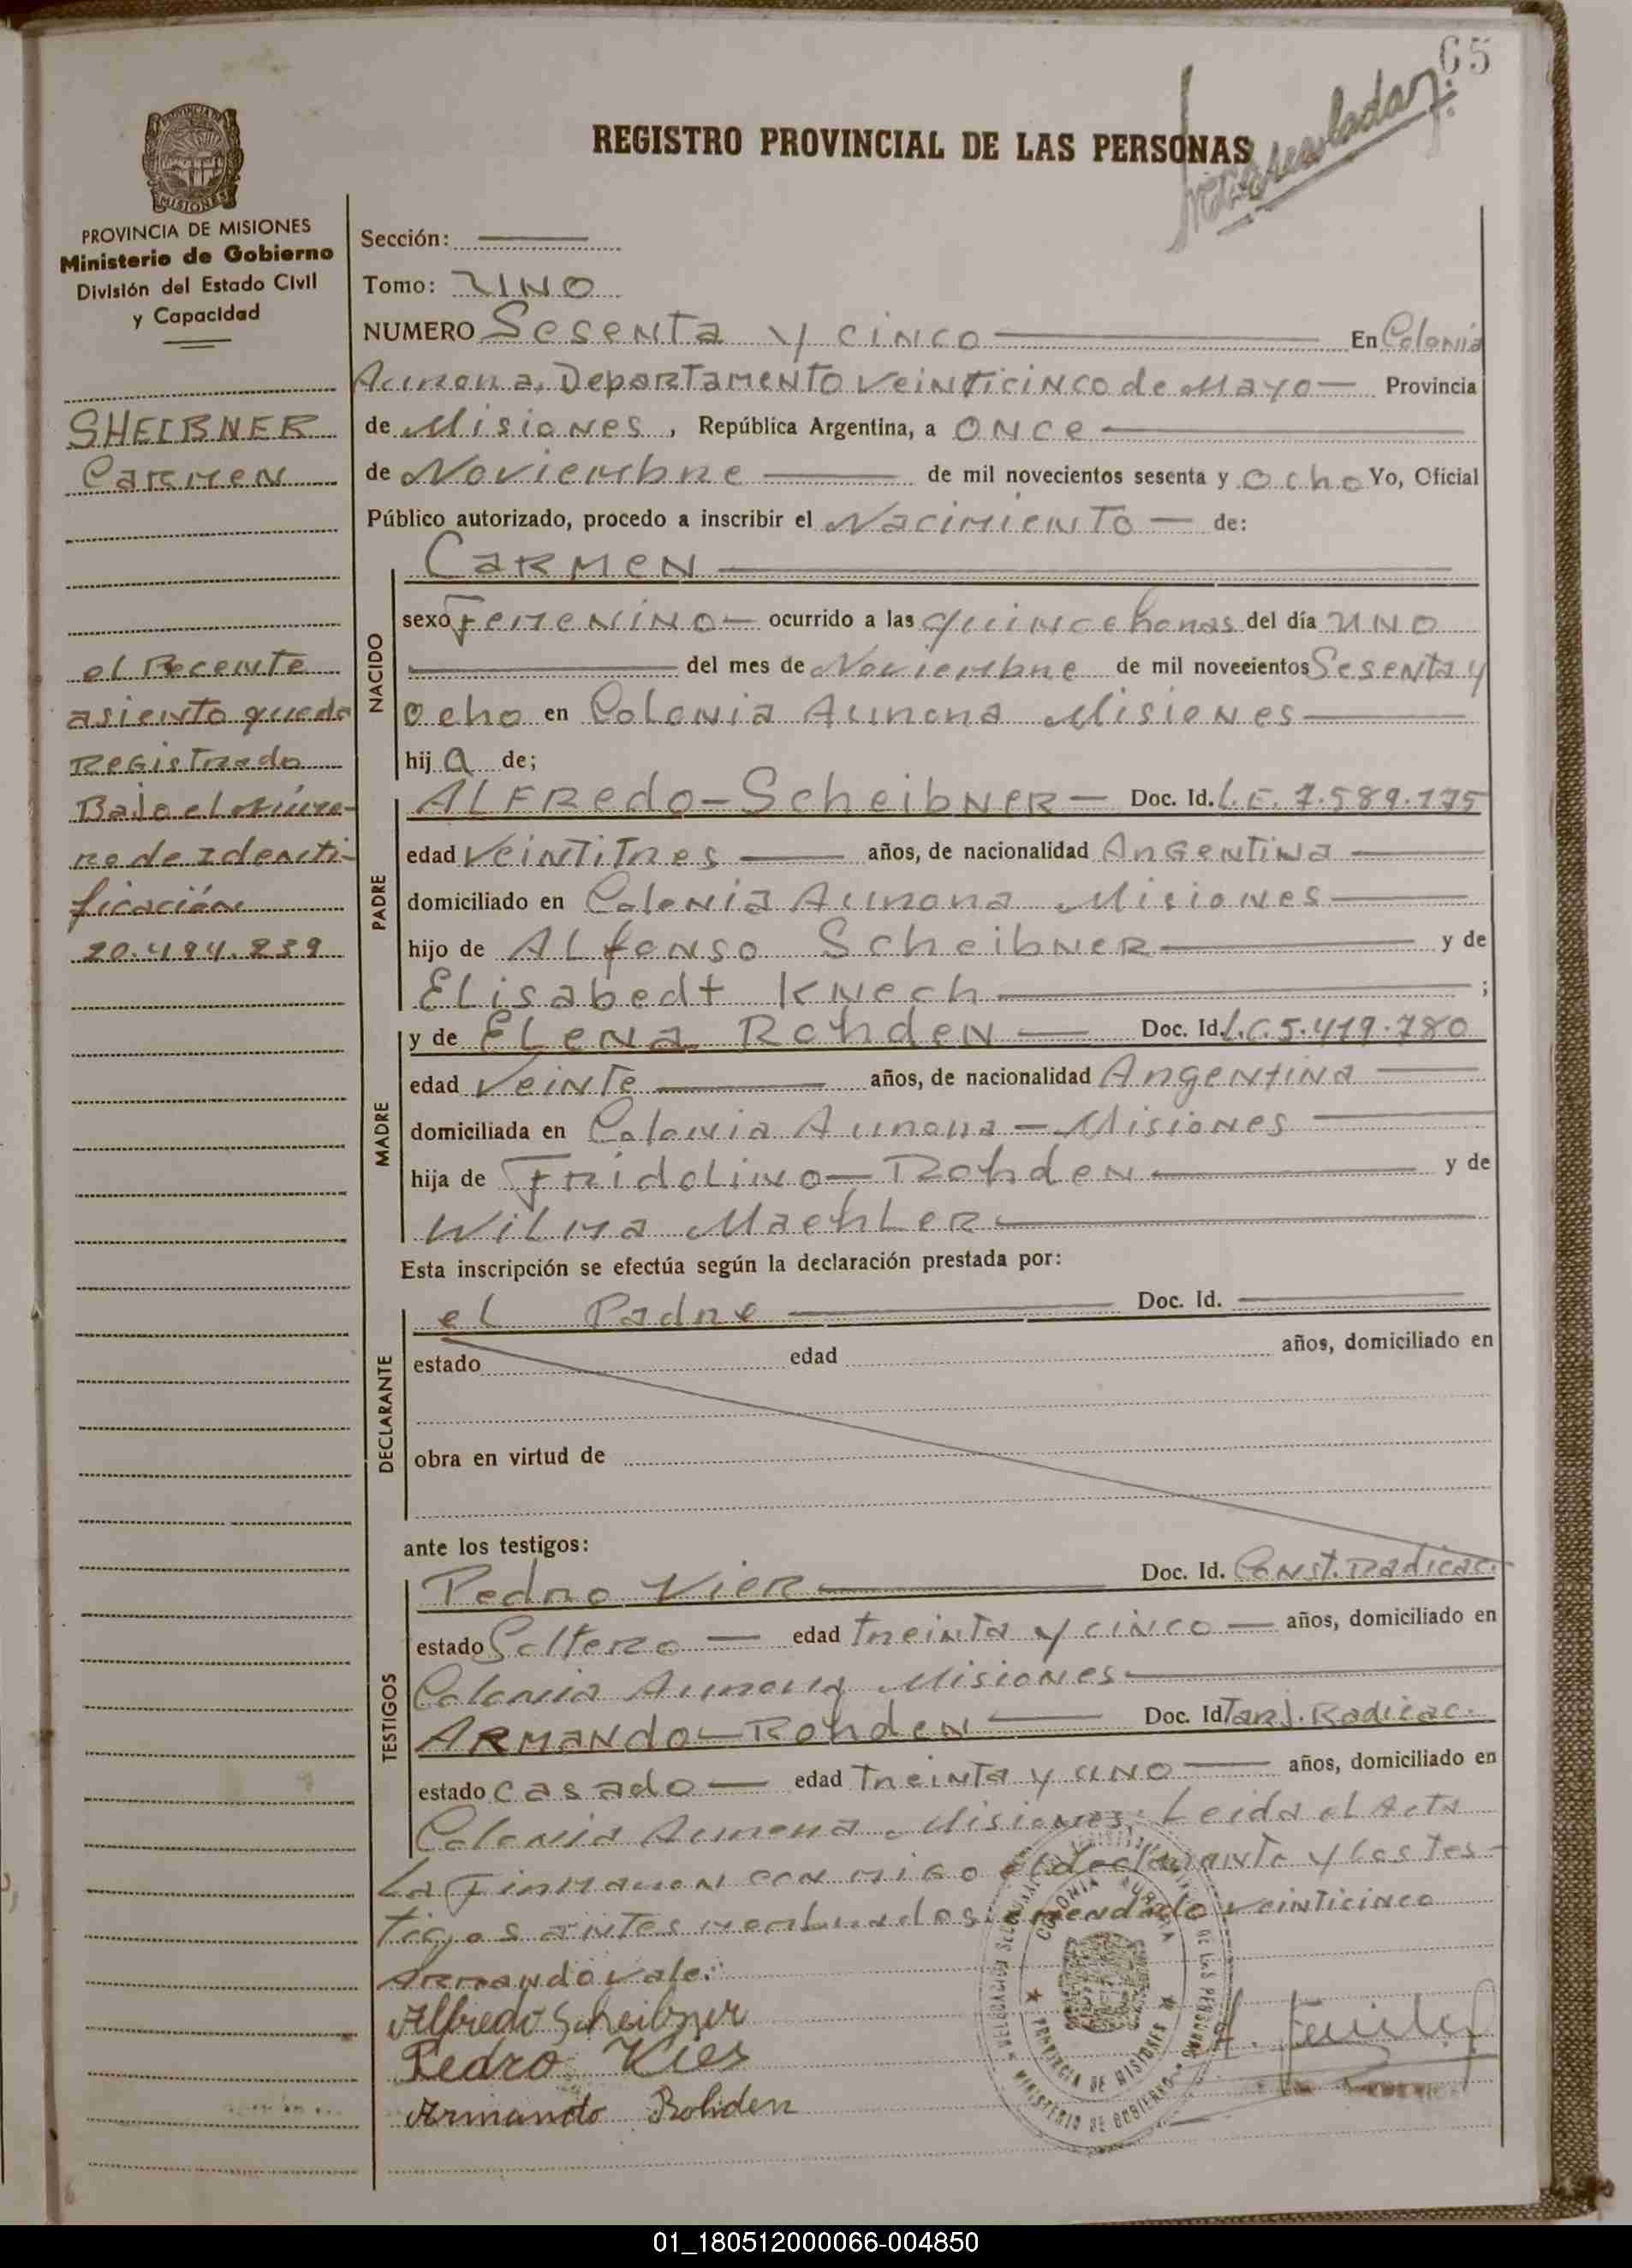 65
REGISTRO PROVINCIAL DE LAS PERSONAS
PROVINCIA DE MISIONES
Ministerio de Gobierno
División del Estado Civil
y Capacidad
SHEIBNER
CARMEN
el Recente
asiento queda
Registrado
Bajo el Núme-
ro de Identi-
ficación
20.494.239
Sección:
Tomo: UNO
NUMERO Sesenta y cinco En Colonia
Aurora, Departamento Veinticinco de Mayo Provincia
de Misiones, República Argentina, a ONCE
de Noviembre de mil novecientos sesenta y ocho Yo, Oficial
Público autorizado, procedo a inscribir el Nacimiento de:
CARMEN
NACIDO
sexo Femenino ocurrido a las quince horas del día UNO
del mes de Noviembre de mil novecientos Sesenta y
ocho en Colonia Aurora Misiones
hij a de;
PADRE
ALFRedo Scheibner Doc. Id. L.E. 7.589.175
edad Veintitres años, de nacionalidad Argentina
domiciliado en Colonia Aurora Misiones
hijo de Alfonso Scheibner y de
Elisabedt Knech ;
MADRE
y de Elena Rohden Doc. Id. L.C. 5.419.780
edad Veinte años, de nacionalidad Argentina
domiciliada en Colonia Aurora - Misiones
hija de Fridolino Rohden y de
Wilma Maehler
Esta inscripción se efectúa según la declaración prestada por:
DECLARANTE
el Padre Doc. Id.
estado edad años, domiciliado en
obra en virtud de
ante los testigos:
TESTIGOS
Pedro Kier Doc. Id. Const. Radicac.
estado Soltero edad treinta y cinco años, domiciliado en
Colonia Aurora Misiones
Armando Rohden Doc. Id Tarj. Radicac.
estado casado edad treinta y uno años, domiciliado en
Colonia Aurora Misiones; Leida el Acta
La Firmaron con migo el declarante y los tes-
tigos antes nombrados. emendado veinticinco
Armando vale:
Alfredo Scheibner
Pedro Kies
Armando Rohden
COLONIA AURORA
PROVINCIA DE MISIONES
MINISTERIO DE GOBIERNO
01_180512000066-004850